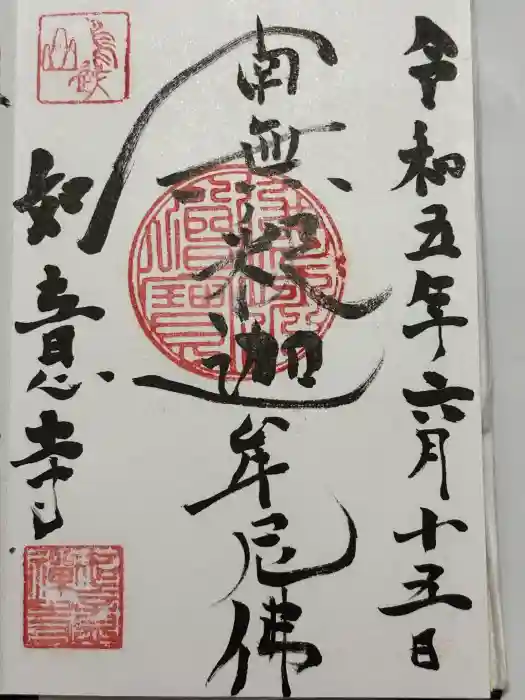 令和五年六月十五日
南無釈迦牟尼佛
如意寺